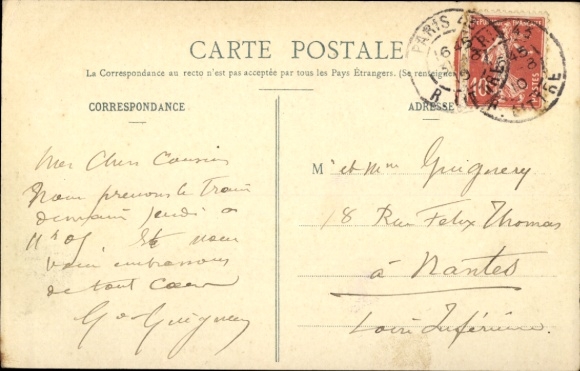 CARTE POSTALE
La Correspondance au recto n'est pas acceptée par tous les Pays Étrangers. (Se renseigner
CORRESPONDANCE
ADRESSE
Mes Chers Cousins
Nous prenons le Train
demain Jeudi a
11h 05. nous
vous embrassons
de tout Coeur
G Guignery
M' et Mme Guignery
18 Rue Felix Thomas
à Nantes
Loire Inférieure.
PARIS
10
POSTES